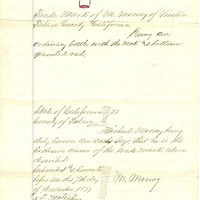 Trade Mark of M. Murray of Visalia
Tulare County California
Being an
ordinary bottle with the neck & bottom
painted red.
State of California } SS
County of Tulare
Michael Murray being
duly sworn says that he is the
exclusive owner of the trade mark above
described
Subscribed & sworn to
before me this
of November 1877
M. Murray